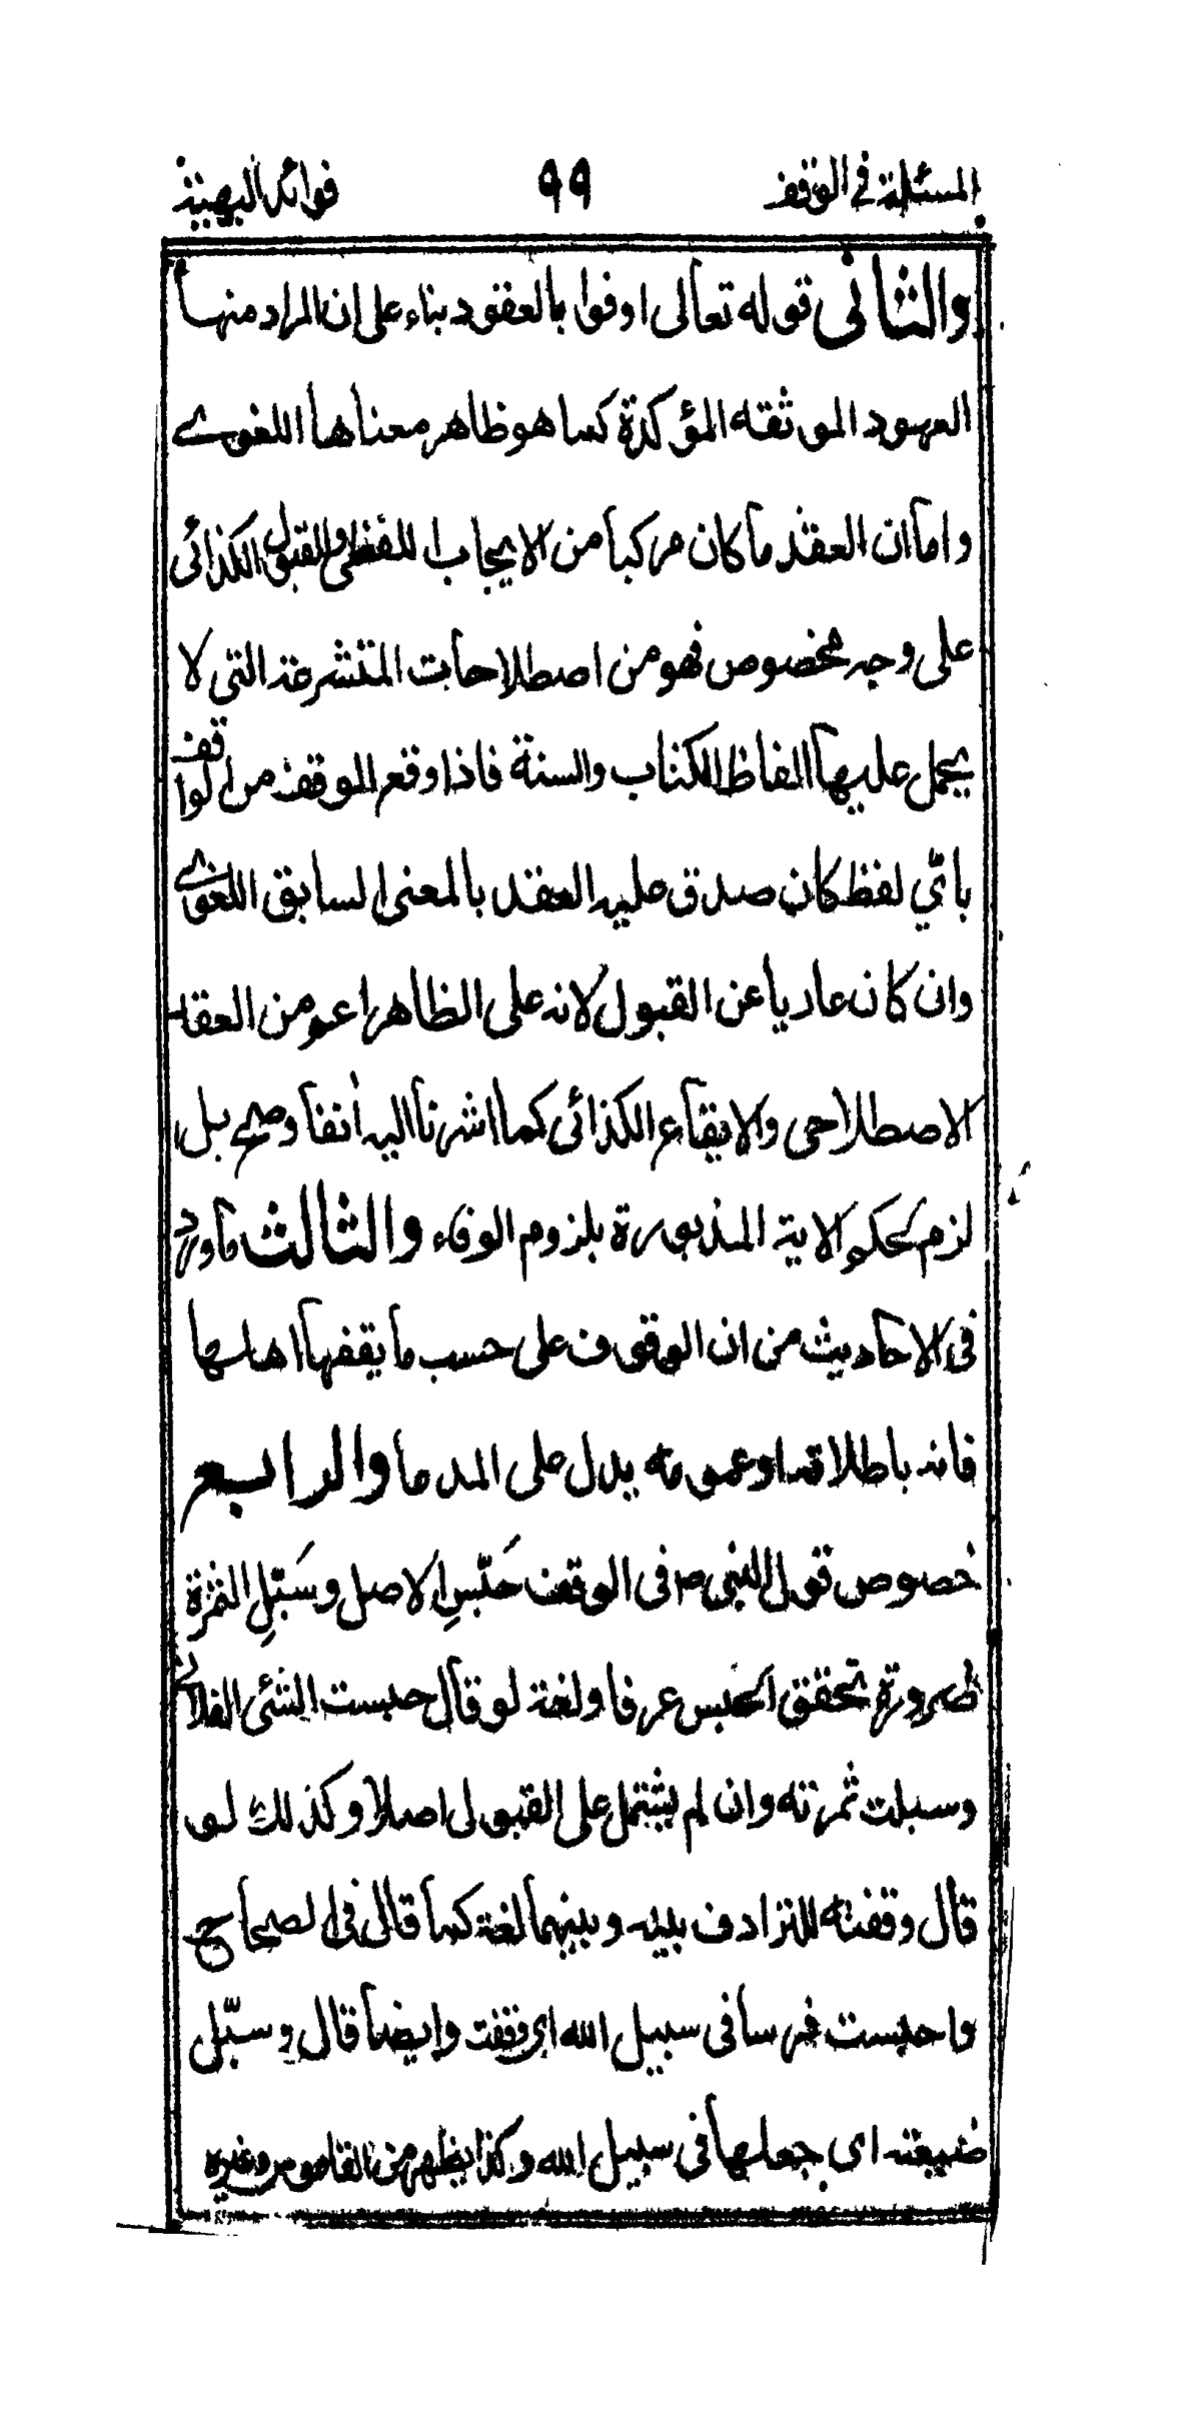 المسئلة في الوقف ٩٩ فوائد البهية
والثاني قوله تعالى اوفوا بالعقود بناء على ان المراد منها
العهود الموثقه المؤكدة كما هو ظاهر معناها اللغوے
واما ان العقد ما كان مركبا من الايجاب اللفظي والقبول الكذائي
على وجه مخصوص فهو من اصطلاحات المتشرعة التي لا
يحمل عليها الفاظ الكتاب والسنة فاذا وقع الوقف من الواقف
باتي لفظ كان صدق عليه العقد بالمعنى السابق اللغوے
وان كان عاديا عن القبول لانه على الظاهر اعم من العقد
الاصطلاحي والايقاع الكذائي كما اشرنا اليه انفا وصح بل
لزم لحكم الاية المذبورة بلزوم الوفاء والثالث ما ورد
في الاحاديث من ان الوقوف على حسب ما يقفها اهلها
فانه باطلاقه او عمومه يدل على المدعا والرابع
خصوص قول النبي ص في الوقف حَبّسِ الاصل وسَبّلِ الثمرة
ضرورة تحقق الحبس عرفا ولغة لو قال حبست الشئى الفلان
وسبلت ثمرته وان لم يشتمل على القبول اصلا وكذلك لو
قال وقفته للترادف بينه وبينهما لغة كما قال في الصحاح
واحبست فرسا في سبيل الله اى وقفت وايضا قال وسبّل
ضيعته اى جعلها في سبيل الله وكذا يظهر من القاموس وغيره